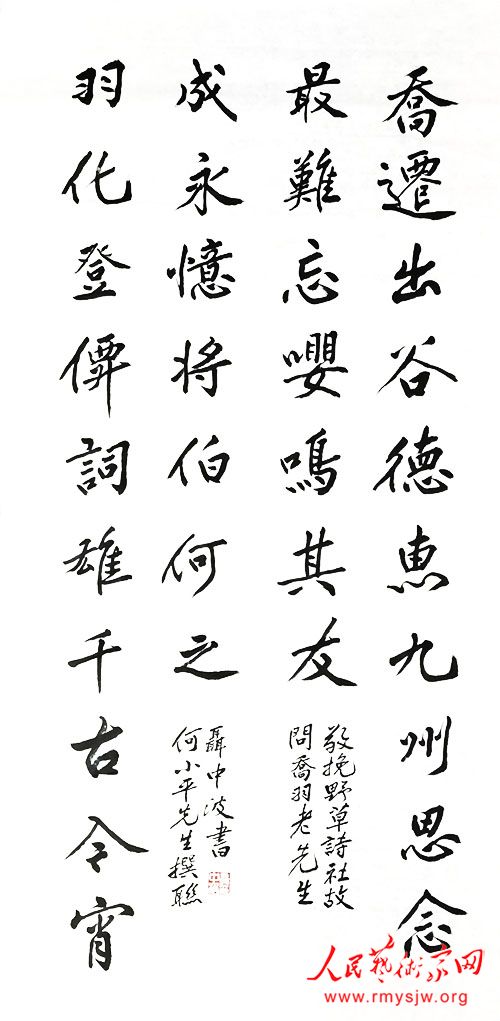 喬遷出谷德惠九州思念
最難忘嚶鳴其友
敬挽野草詩社故
問喬羽老先生
羽化登僊詞雄千古今宵
成永憶將伯何之
何小平先生撰聯
聶中波書
人民藝術家网
www.rmysjw.org